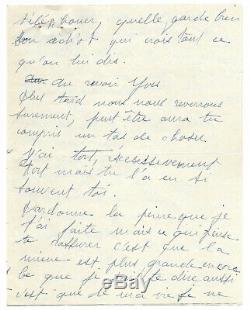 téléphoner, qu'elle garde bien
son idiot qui crois tout ce
qu'on lui dis.
au revoir Yves
Plus tard nous nous reverrons
surement, peut être aura tu
compris un tas de choses
J'ai tort, excessivement
tort mais tu l'a eu si
souvent toi.
Pardonne la peine que je
t'ai faite mais ce qui peuse
te rassurer c'est que la
mienne est plus grande encore
Ce que je te dire aussi
c'est que de ma vie je ne